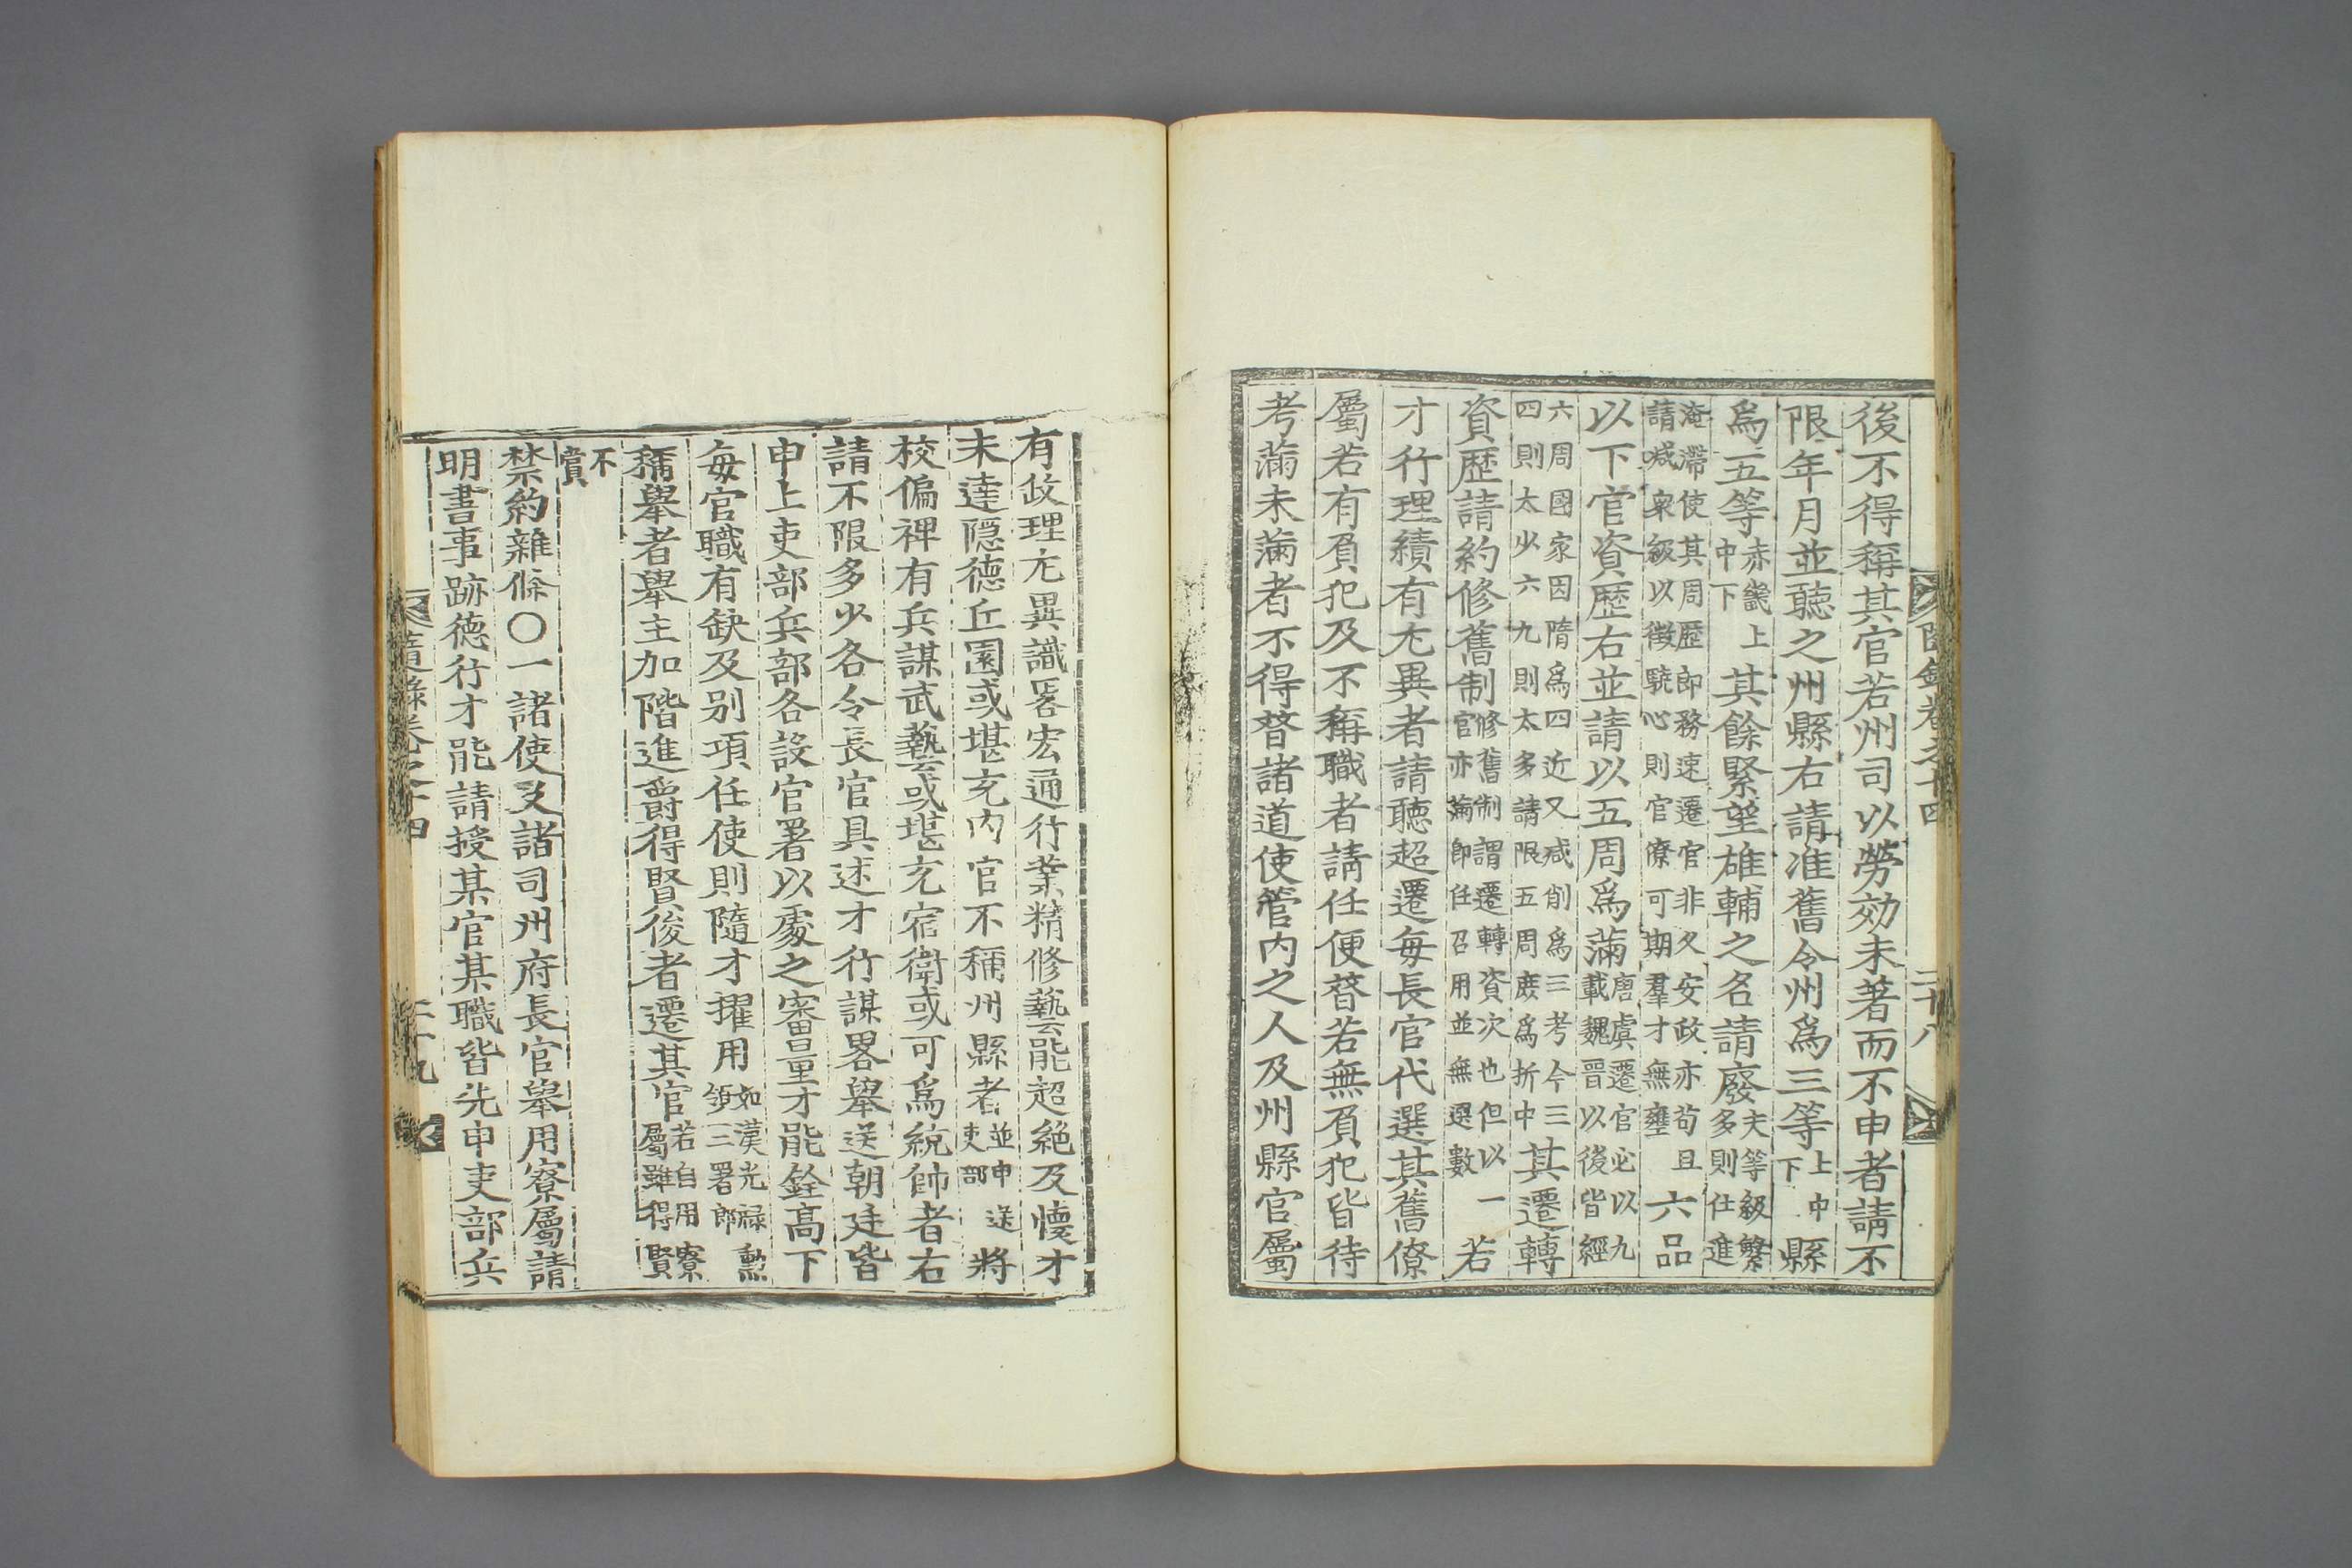 隨錄卷之十四
二十八
後不得稱其官若州司以勞効未著而不申者請不
限年月並聽之州縣右請准舊令州爲三等上中下縣
爲五等赤畿上中下其餘緊望雄輔之名請廢夫等級繁多則仕進
淹滯使其周歷卽務速遷官非久安政亦苟且請减衆級以徵驍心則官僚可期羣才無壅六品
以下官資歷右並請以五周爲滿唐虞遷官必以九載魏晉以後皆經
六周國家因隋爲四近又减削爲三考今三四則太少六九則太多請限五周庶爲折中其遷轉
資歷請約修舊制修舊制謂遷轉資次也但以一官亦滿卽任召用並無選數若
才行理績有尤異者請聽超遷每長官代選其舊僚
屬若有負犯及不稱職者請任便替若無負犯皆待
考滿未滿者不得替諸道使管內之人及州縣官屬
有政理尤異識畧宏通行業精修藝能超絶及懷才
未達隱德丘園或堪充內官不稱州縣者並申送吏部將
校偏裨有兵謀武藝或堪充宿衛或可爲統帥者右
請不限多少各令長官具述才行謀畧舉送朝廷皆
申上吏部兵部各設官署以處之審量才能銓高下
每官職有缺及別項任使則隨才擢用如漢光祿勳領三署郎
稱舉者舉主加階進爵得賢後者遷其官若自用寮屬雖得賢
不賞
禁約雜條〇一諸使及諸司州府長官舉用寮屬請
明書事跡德行才能請授某官某職皆先申吏部兵
隨錄卷之十四
二十九